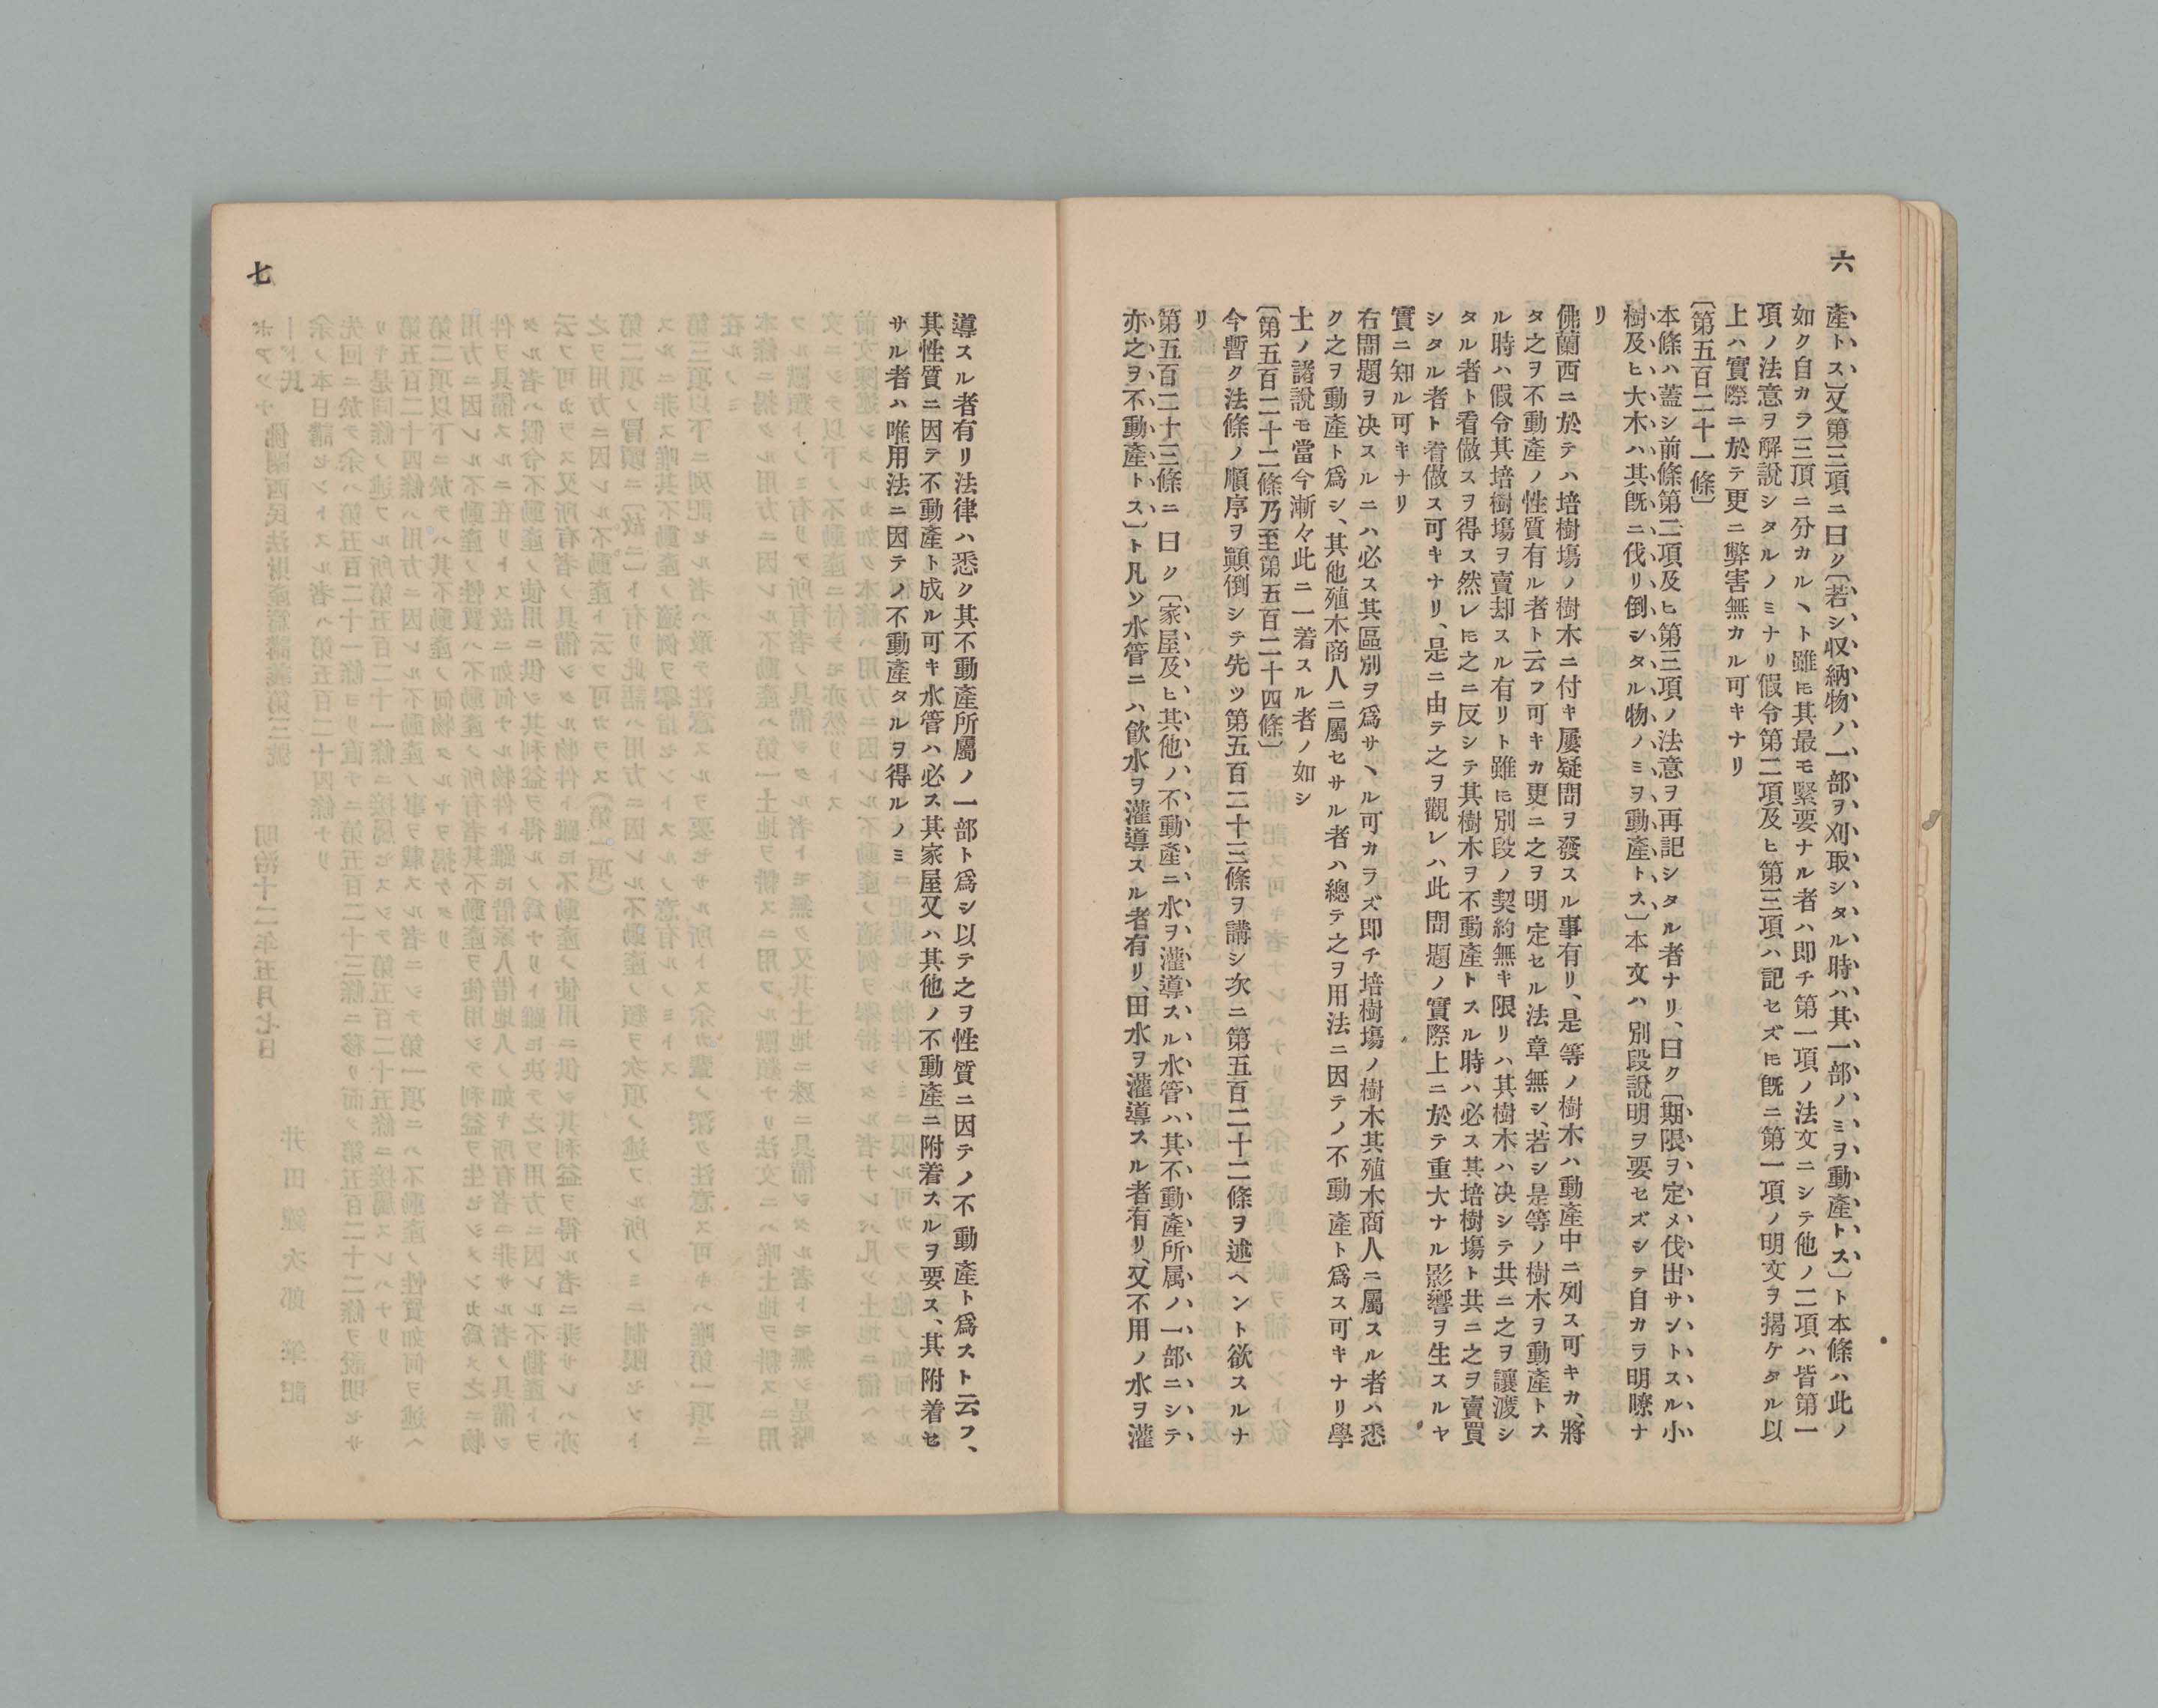 六
產トス〕又第三項ニ曰ク〔若シ収納物ノ一部ヲ刈取シタル時ハ其一部ノミヲ動產トス〕ト本條ハ此ノ
如ク自カラ三項ニ分カルヽト雖𪜈其最モ緊要ナル者ハ即チ第一項ノ法文ニシテ他ノ二項ハ皆第一
項ノ法意ヲ解説シタルノミナリ假令第二項及ヒ第三項ハ記セズ𪜈既ニ第一項ノ明文ヲ揭ケタル以
上ハ實際ニ於テ更ニ弊害無カル可キナリ
〔第五百二十一條〕
本條ハ蓋シ前條第二項及ヒ第三項ノ法意ヲ再記シタル者ナリ、曰ク〔期限ヲ定メ伐出サントスル小
樹及ヒ大木ハ其既ニ伐リ倒シタル物ノミヲ動產トス〕本文ハ別段説明ヲ要セズシテ自カラ明瞭ナ
リ
佛蘭西ニ於テハ培樹塲ノ樹木ニ付キ屢疑問ヲ發スル事有リ、是等ノ樹木ハ動產中ニ列ス可キカ、將
タ之ヲ不動產ノ性質有ル者ト云フ可キカ更ニ之ヲ明定セル法章無シ、若シ是等ノ樹木ヲ動產トス
ル時ハ假令其培樹塲ヲ賣却スル有リト雖𪜈別段ノ契約無キ限リハ其樹木ハ决シテ共ニ之ヲ讓渡シ
タル者ト看做スヲ得ス然レ𪜈之ニ反シテ其樹木ヲ不動產トスル時ハ必ス其培樹塲ト共ニ之ヲ賣買
シタル者ト看做ス可キナリ、是ニ由テ之ヲ觀レハ此問題ノ實際上ニ於テ重大ナル影響ヲ生スルヤ
實ニ知ル可キナリ
右問題ヲ决スルニハ必ス其區別ヲ爲サヽル可カラズ即チ培樹塲ノ樹木其殖木商人ニ屬スル者ハ悉
ク之ヲ動產ト爲シ、其他殖木商人ニ屬セサル者ハ總テ之ヲ用法ニ因テノ不動產ト爲ス可キナリ學
士ノ諸説モ當今漸々此ニ一着スル者ノ如シ
〔第五百二十二條乃至第五百二十四條〕
今暫ク法條ノ順序ヲ顚倒シテ先ツ第五百二十三條ヲ講シ次ニ第五百二十二條ヲ述ヘント欲スルナ
リ
第五百二十三條ニ曰ク〔家屋及ヒ其他ノ不動產ニ水ヲ灌導スル水管ハ其不動產所属ノ一部ニシテ
亦之ヲ不動產トス〕ト凡ソ水管ニハ飮水ヲ灌導スル者有リ、田水ヲ灌導スル者有リ、又不用ノ水ヲ灌
七
導スル者有リ法律ハ悉ク其不動產所屬ノ一部ト爲シ以テ之ヲ性質ニ因テノ不動產ト爲スト云フ、
其性質ニ因テ不動產ト成ル可キ水管ハ必ス其家屋又ハ其他ノ不動產ニ附着スルヲ要ス、其附着セ
サル者ハ唯用法ニ因テノ不動產タルヲ得ルノミ